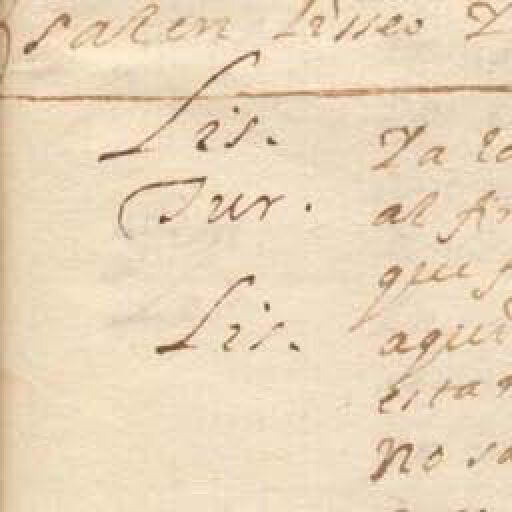 salen Lisseo Y
Lis. Ya lo
Tur. al fin
que
Lis. aqui
estan
No sa